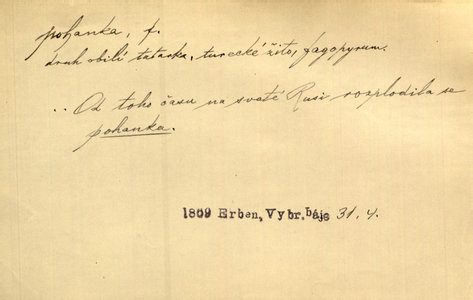 pohanka, f.
druh obilí tatarka, turecké žito, fagopyrum.
.. Od toho času na svaté Rusi rozplodila se
pohanka.
1869 Erben, Vybr. báje 31. 4.